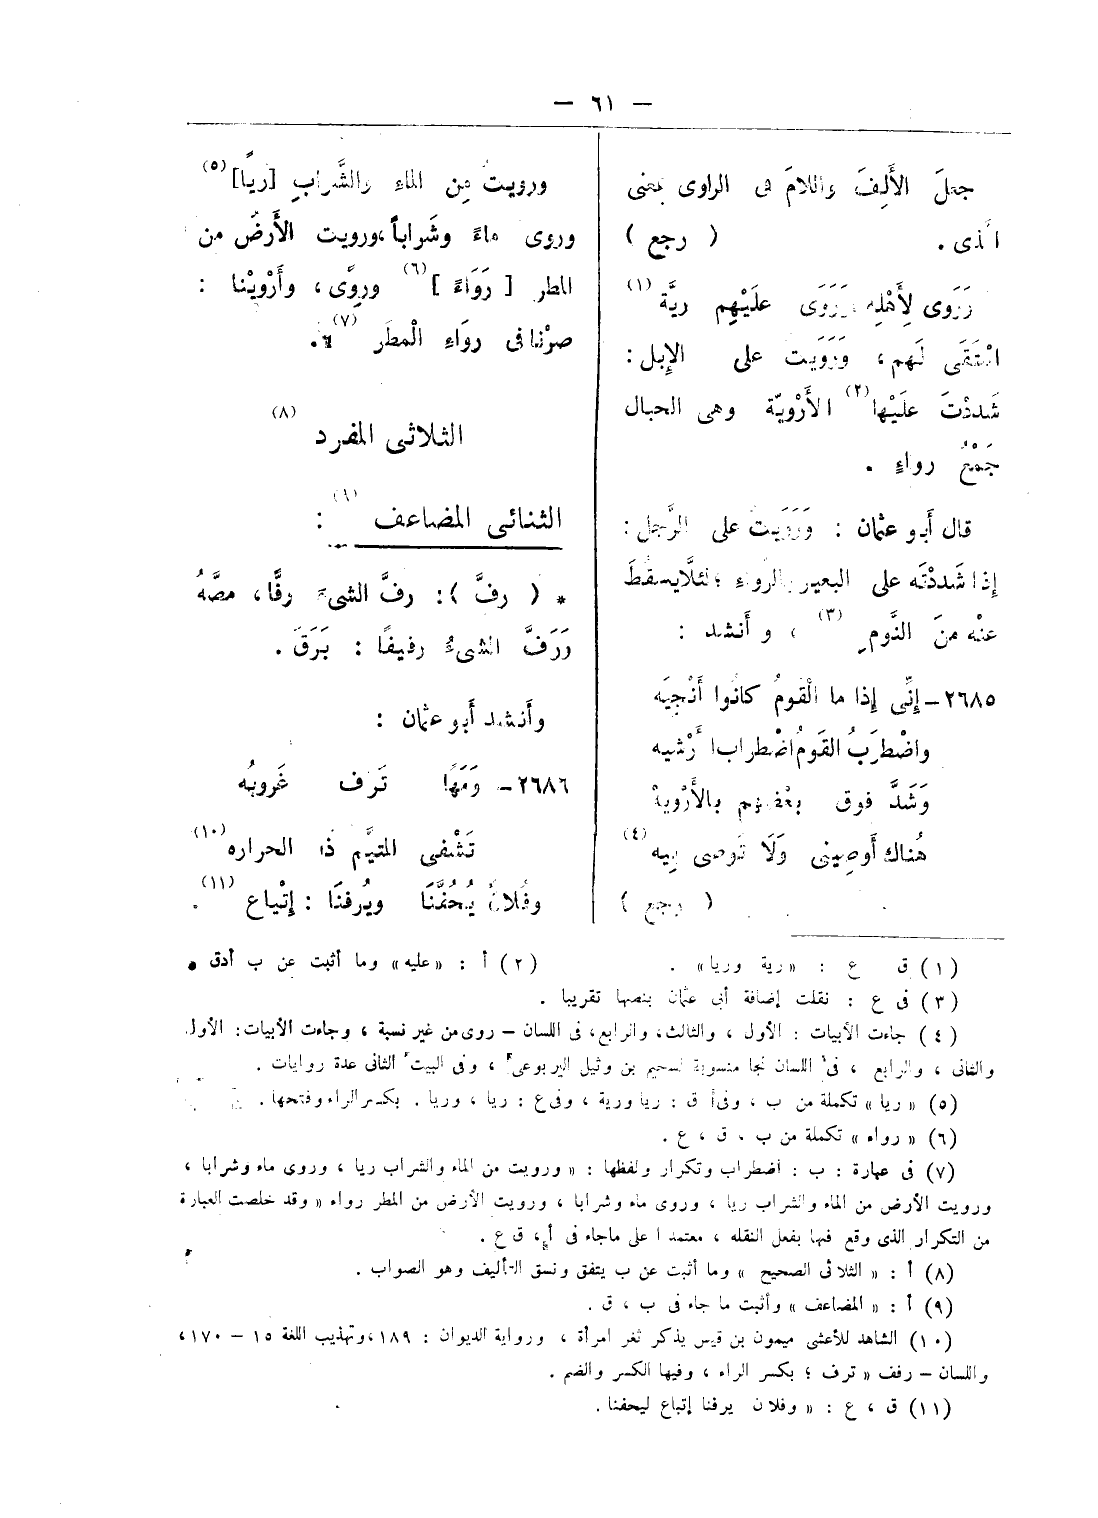 — ٦١ —
جعلَ الأَلِفَ واللامَ فى الراوى بمعنى
الَّذى . ( رجع )
رَوَى لِأَهْلِهِ وَرَوَى علَيْهِم ريَّة (١)
اسْتَقَى لَهم ، وَرَوَيت على الإبل :
شَددْتَ علَيْها (٢) الأَرْوِيَة وهى الحبال
جَمْعُ رواءٍ .
قال أَبو عثمان : وَرَوَيت على الرَّجل :
إذا شَددْتَه على البعير بالرَّواء ؛ لئلَّا يسقُطَ
عنْه منَ النَّوم (٣) ، وأَنشد :
٢٦٨٥ – إنِّى إذا ما الْقومُ كانُوا أَنْجِيَه
واضْطرَبَ القَومُ اضْطراب الأَرْشيه
وَشَدَّ فوق بعْضِهِم بالأَرْوِيهْ
هُناك أَوصِينى وَلَا تُوصى بيه (٤)
( رجع )
ورويتُ مِن الماءِ والشَّرابِ [ريًّا] (٥)
وروى ماءً وشَراباً، ورويت الأَرضُ من
المطر [ رَوَاءً ] (٦) وروًّى ، وأَرْوَيْنا :
صرْنا فى رواءِ الْمطَر (٧) .
الثلاثى المفرد (٨)
الثنائى المضاعف (٩) :
* ( رفَّ ) : رفَّ الشىءَ رفًّا ، مصَّهُ
وَرَفَّ الشىءُ رفيفًا : بَرَقَ .
وأَنشد أَبو عثمان :
٢٦٨٦ – وَمَهًا تَرَف غَروبُه
تَشْفى المتيَّم ذا الحراره (١٠)
وفُلانٌ يُحُفُّنَا ويُرفنَا : إتْباع (١١) .
(١) ق ع : «رية وريا» . (٢) أ : «عليه» وما أثبت عن ب أدق .
(٣) فى ع : نقلت إضافة أبى عثمان بنصها تقريبا .
(٤) جاءت الأبيات : الأول ، والثالث، والرابع، فى اللسان – روى من غير نسبة ، وجاءت الأبيات : الأول
والثانى ، والرابع ، فى اللسان نجا منسوبة لسحيم بن وثيل اليربوعى ، وفى البيت الثانى عدة روايات .
(٥) « ريا » تكملة من ب ، وفى أ ق : ريا ورية ، وفى ع : ريا ، وريا . بكسر الراء وفتحها .
(٦) « رواء » تكملة من ب ، ق ، ع .
(٧) فى عبارة : ب : اضطراب وتكرار ولفظها : « ورويت من الماء والشراب ريا ، وروى ماء وشرابا ،
ورويت الأرض من الماء والشراب ريا ، وروى ماء وشرابا ، ورويت الأرض من المطر رواء » وقد خلصت العبارة
من التكرار الذى وقع فيها بفعل النقله ، معتمدا على ماجاء فى أ ، ق ع .
(٨) أ : « الثلاثى الصحيح » وما أثبت عن ب يتفق ونسق التأليف وهو الصواب .
(٩) أ : « المضاعف » وأثبت ما جاء فى ب ، ق .
(١٠) الشاهد للأعشى ميمون بن قيس يذكر ثغر امرأة ، ورواية الديوان : ١٨٩ ، وتهذيب اللغة ١٥ – ١٧٠ ،
واللسان – رفف « ترف ؛ بكسر الراء ، وفيها الكسر والضم .
(١١) ق ، ع : « وفلان يرفنا إتباع ليحفنا .